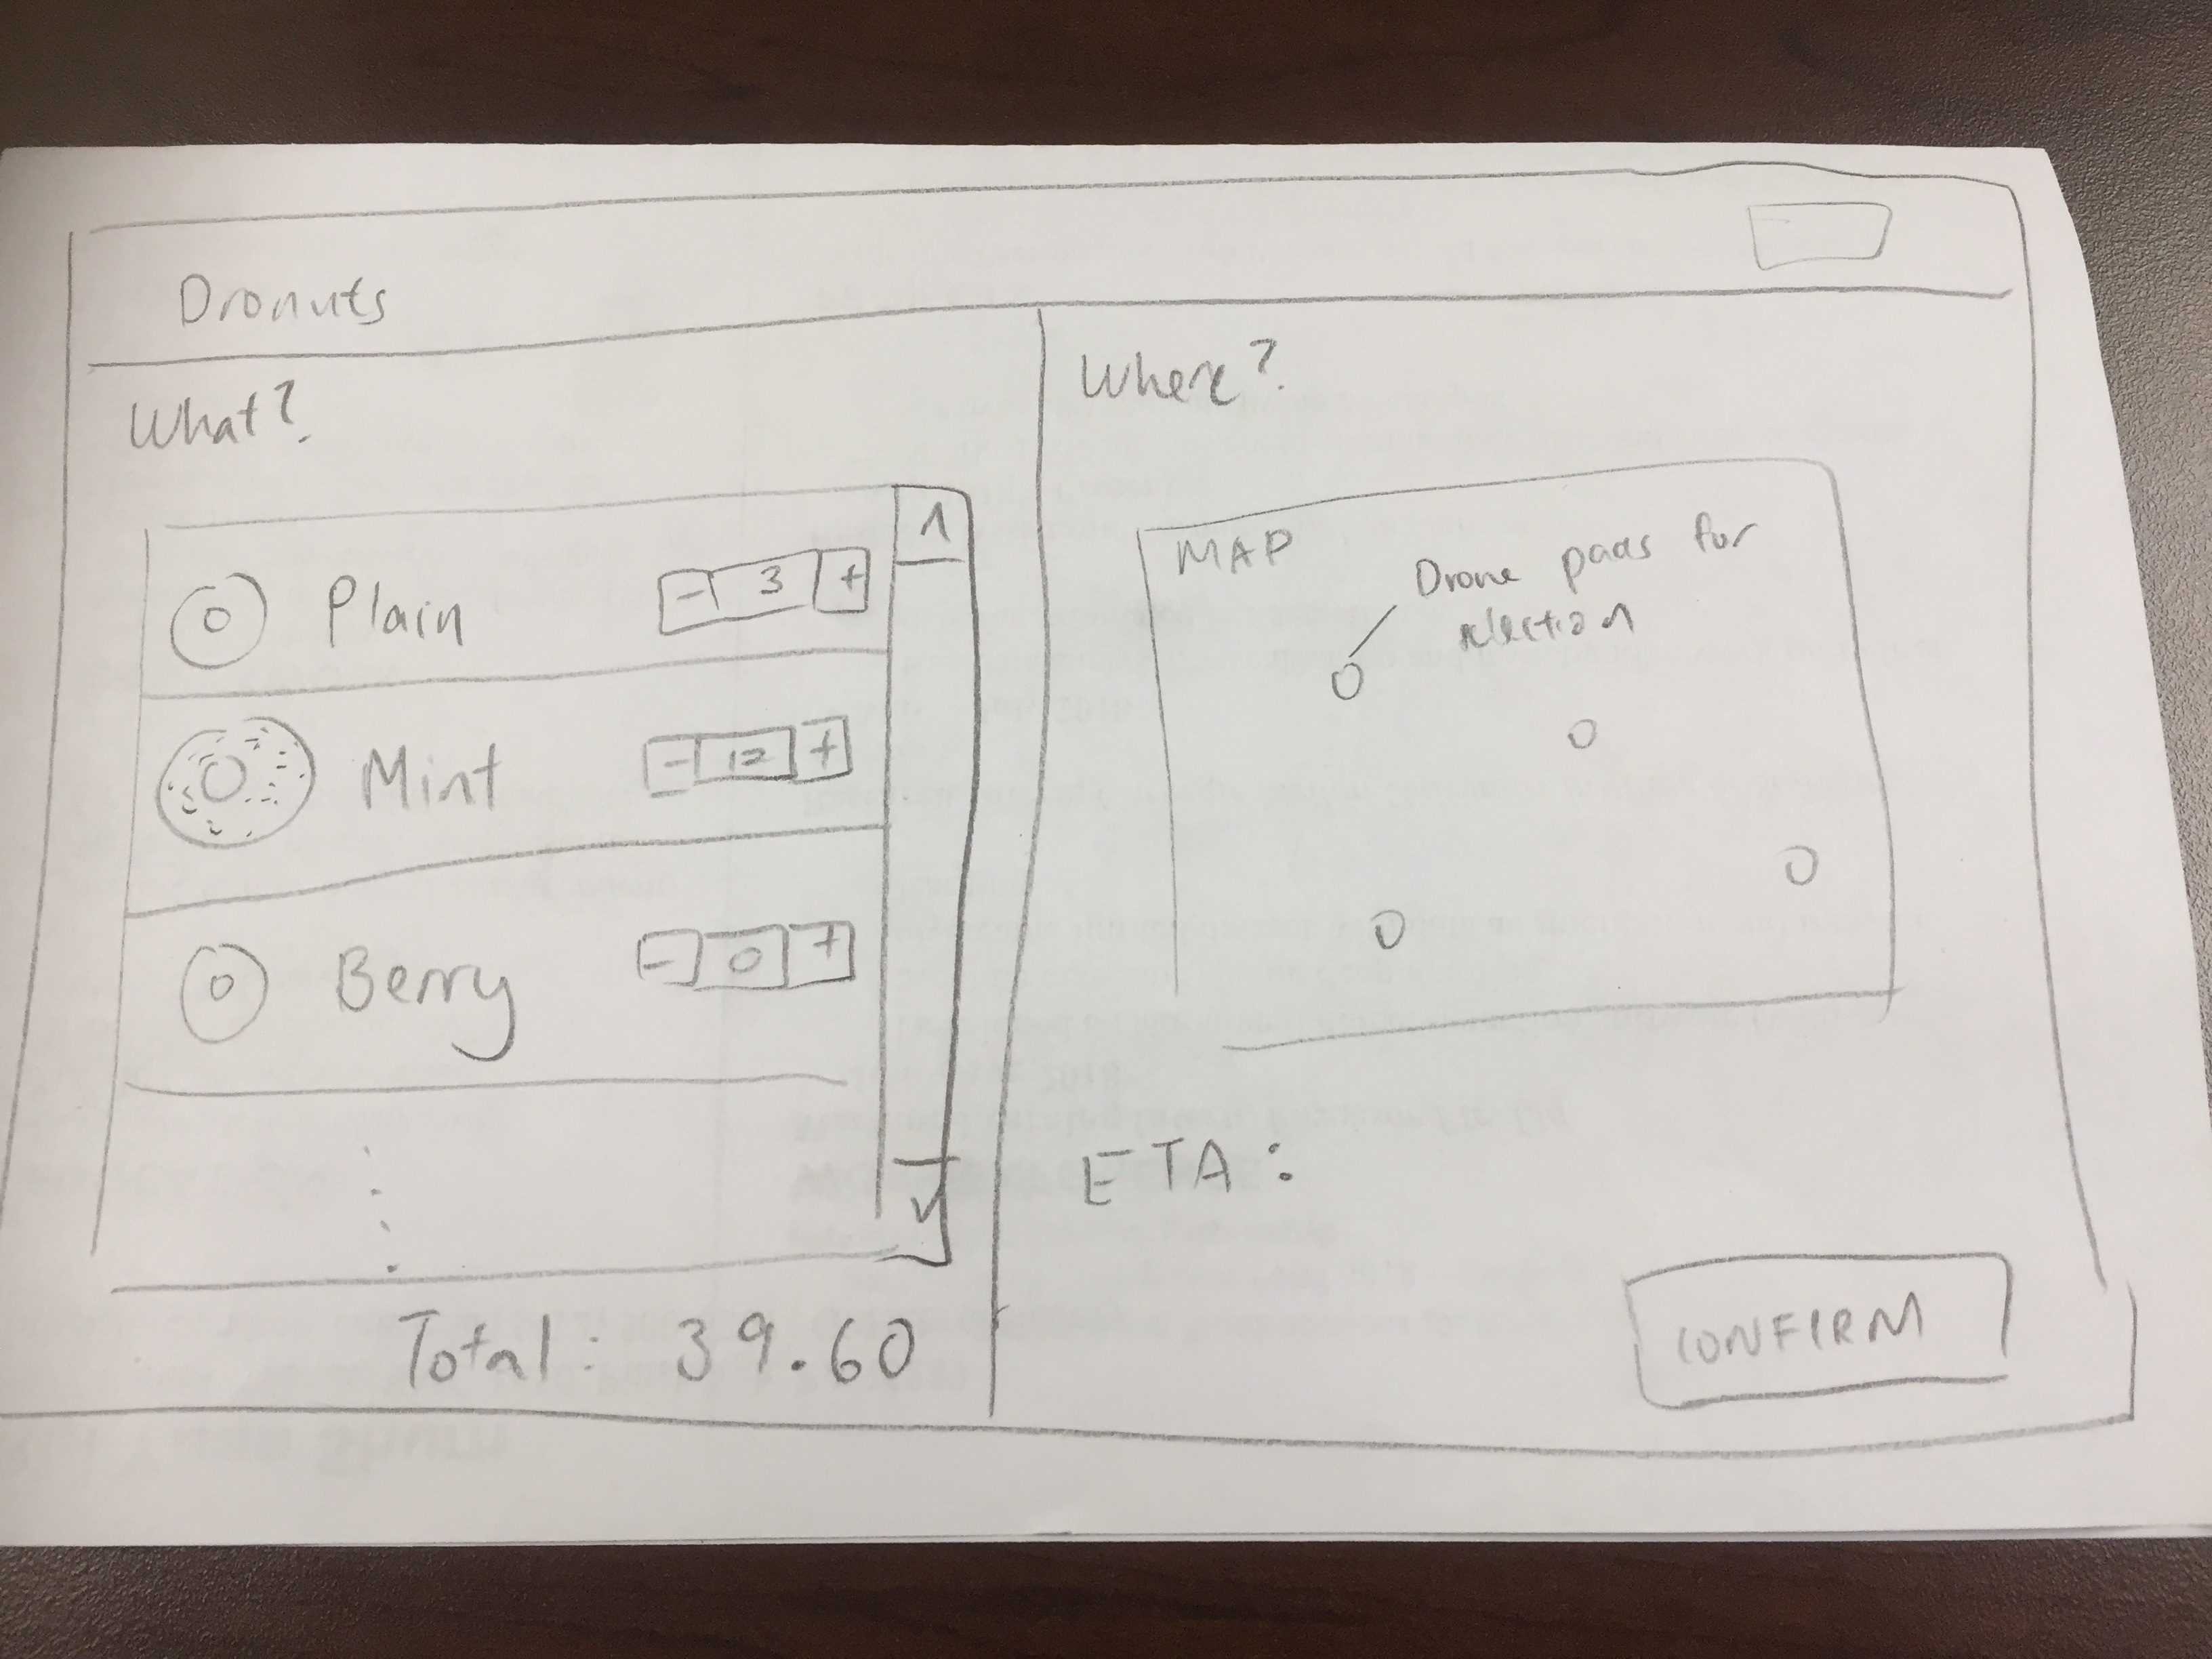 Dronuts
What?
Plain - 3 +
Mint - 12 +
Berry - 0 +
Total: 39.60
Where?
MAP
Drone pads for
selection
ETA:
CONFIRM